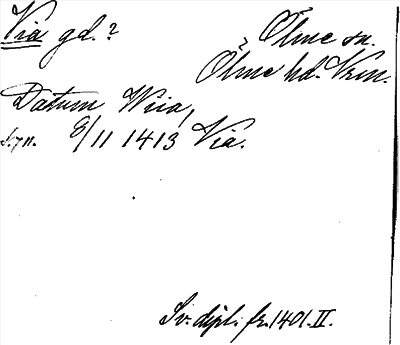 Via gd.? Ölme sn.
Ölme hd. Vrm.
Datum Wiia,
8/11 1413 Via.
Sv. dipl. fr. 1401. II.